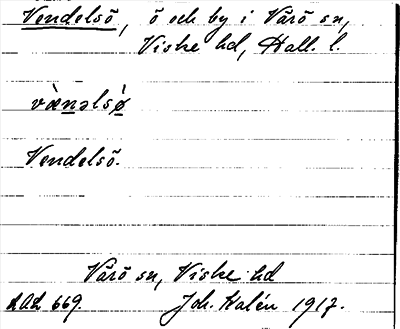 Vendelsö, ö och by i Värö sn,
Viske hd, Hall. l.
vænəlsø
Vendelsö.
Värö sn, Viske hd
669. Joh. Kalén 1917.